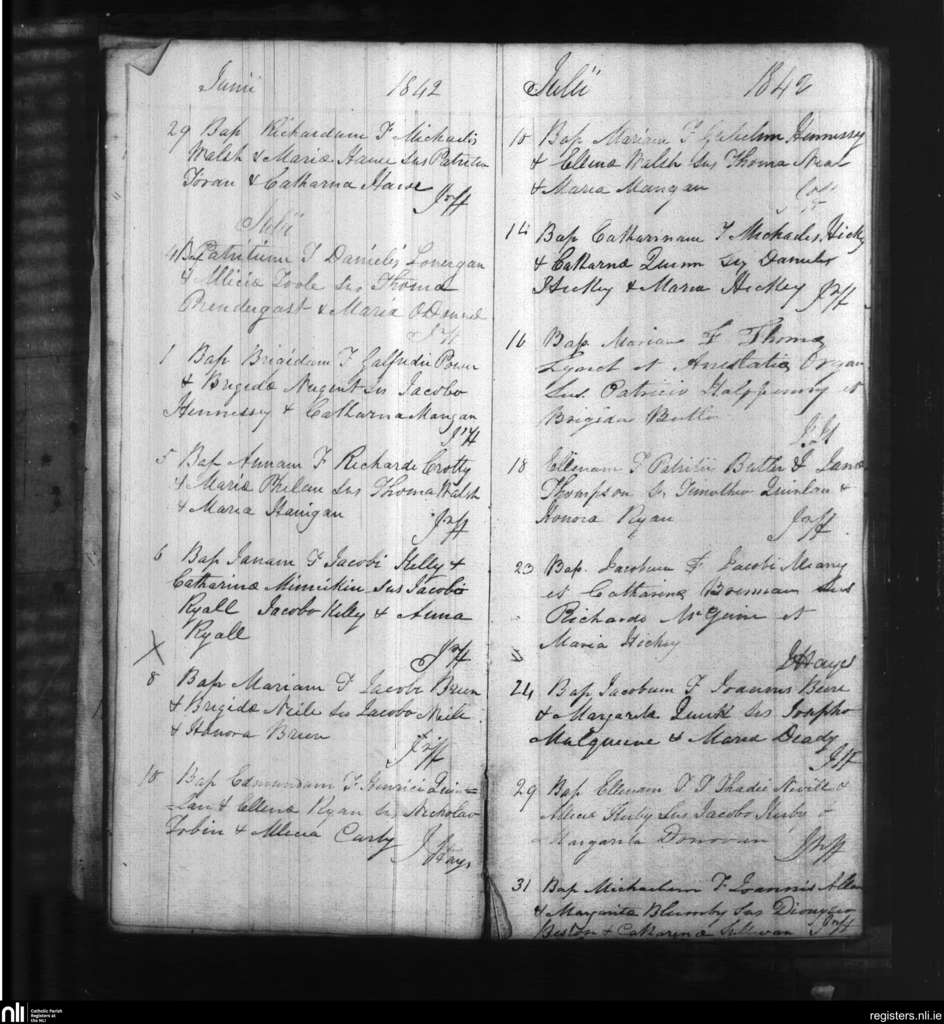 Junii 1842
29 Bap Richardum F Michaelis
Walsh & Maria Hawe Sus Patricio
Foran & Catharina Hawe
Julii
4 Bap Patritium F Danielis Lonergan
& Allicia Toole Sus Thoma
Prendergast & Maria O Donnel
1 Bap Brigidam F Galfridii Power
& Brigida Nugent Sus Jacobo
Hennessy & Catharina Mangan
5 Bap Annam F Richardi Crotty
& Maria Phelan Sus Thoma Walsh
& Maria Hanigan
6 Bap Janam F Jacobi Kelly &
Catharina Minnikin Sus Jacobo
Ryall Jacobo Kelly & Anna
Ryall
X
8 Bap Mariam F Jacobi Breen
& Brigida Neile Sus Jacobo Neile
& Honora Breen
10 Bap Edmundum F Henrici Quin=
=lan & Ellena Ryan Sus Nicholao
Tobin & Allicia Carty J Hays
Julii 1842
10 Bap Mariam F Hennessy
& Ellena Walsh Sus Thoma Neal
& Maria Mangan
14 Bap Catharinam F Michaelis Hickey
& Catharina Quinn Sus Daniele
Hickey & Maria Hickey
16 Bap Mariam F Thoma
et Anastatia
Sus Patricio Halppenny et
Brigida Butler
18 Ellenam F Patritii Butler & Jana
Thompson Sus Timotheo Quinlan &
Honora Ryan
23 Bap. Jacobum F Jacobi Meany
et Catharina Brennan Sus
Richardo McGuire et
Maria Hickey
J Hays
24 Bap Jacobum F Joannis
& Margarita Quirk Sus Josepho
& Maria Deady
29 Bap Ellenam F Thadii Nevill &
Allicia Kirby Sus Jacobo Kirby &
Margarita Donovan
31 Bap Michaelem F Joannis Allen
& Margarita Sus Dionysio
Beston & Catharina Sullivan
nli Catholic Parish
Registers at
the NLI
registers.nli.ie